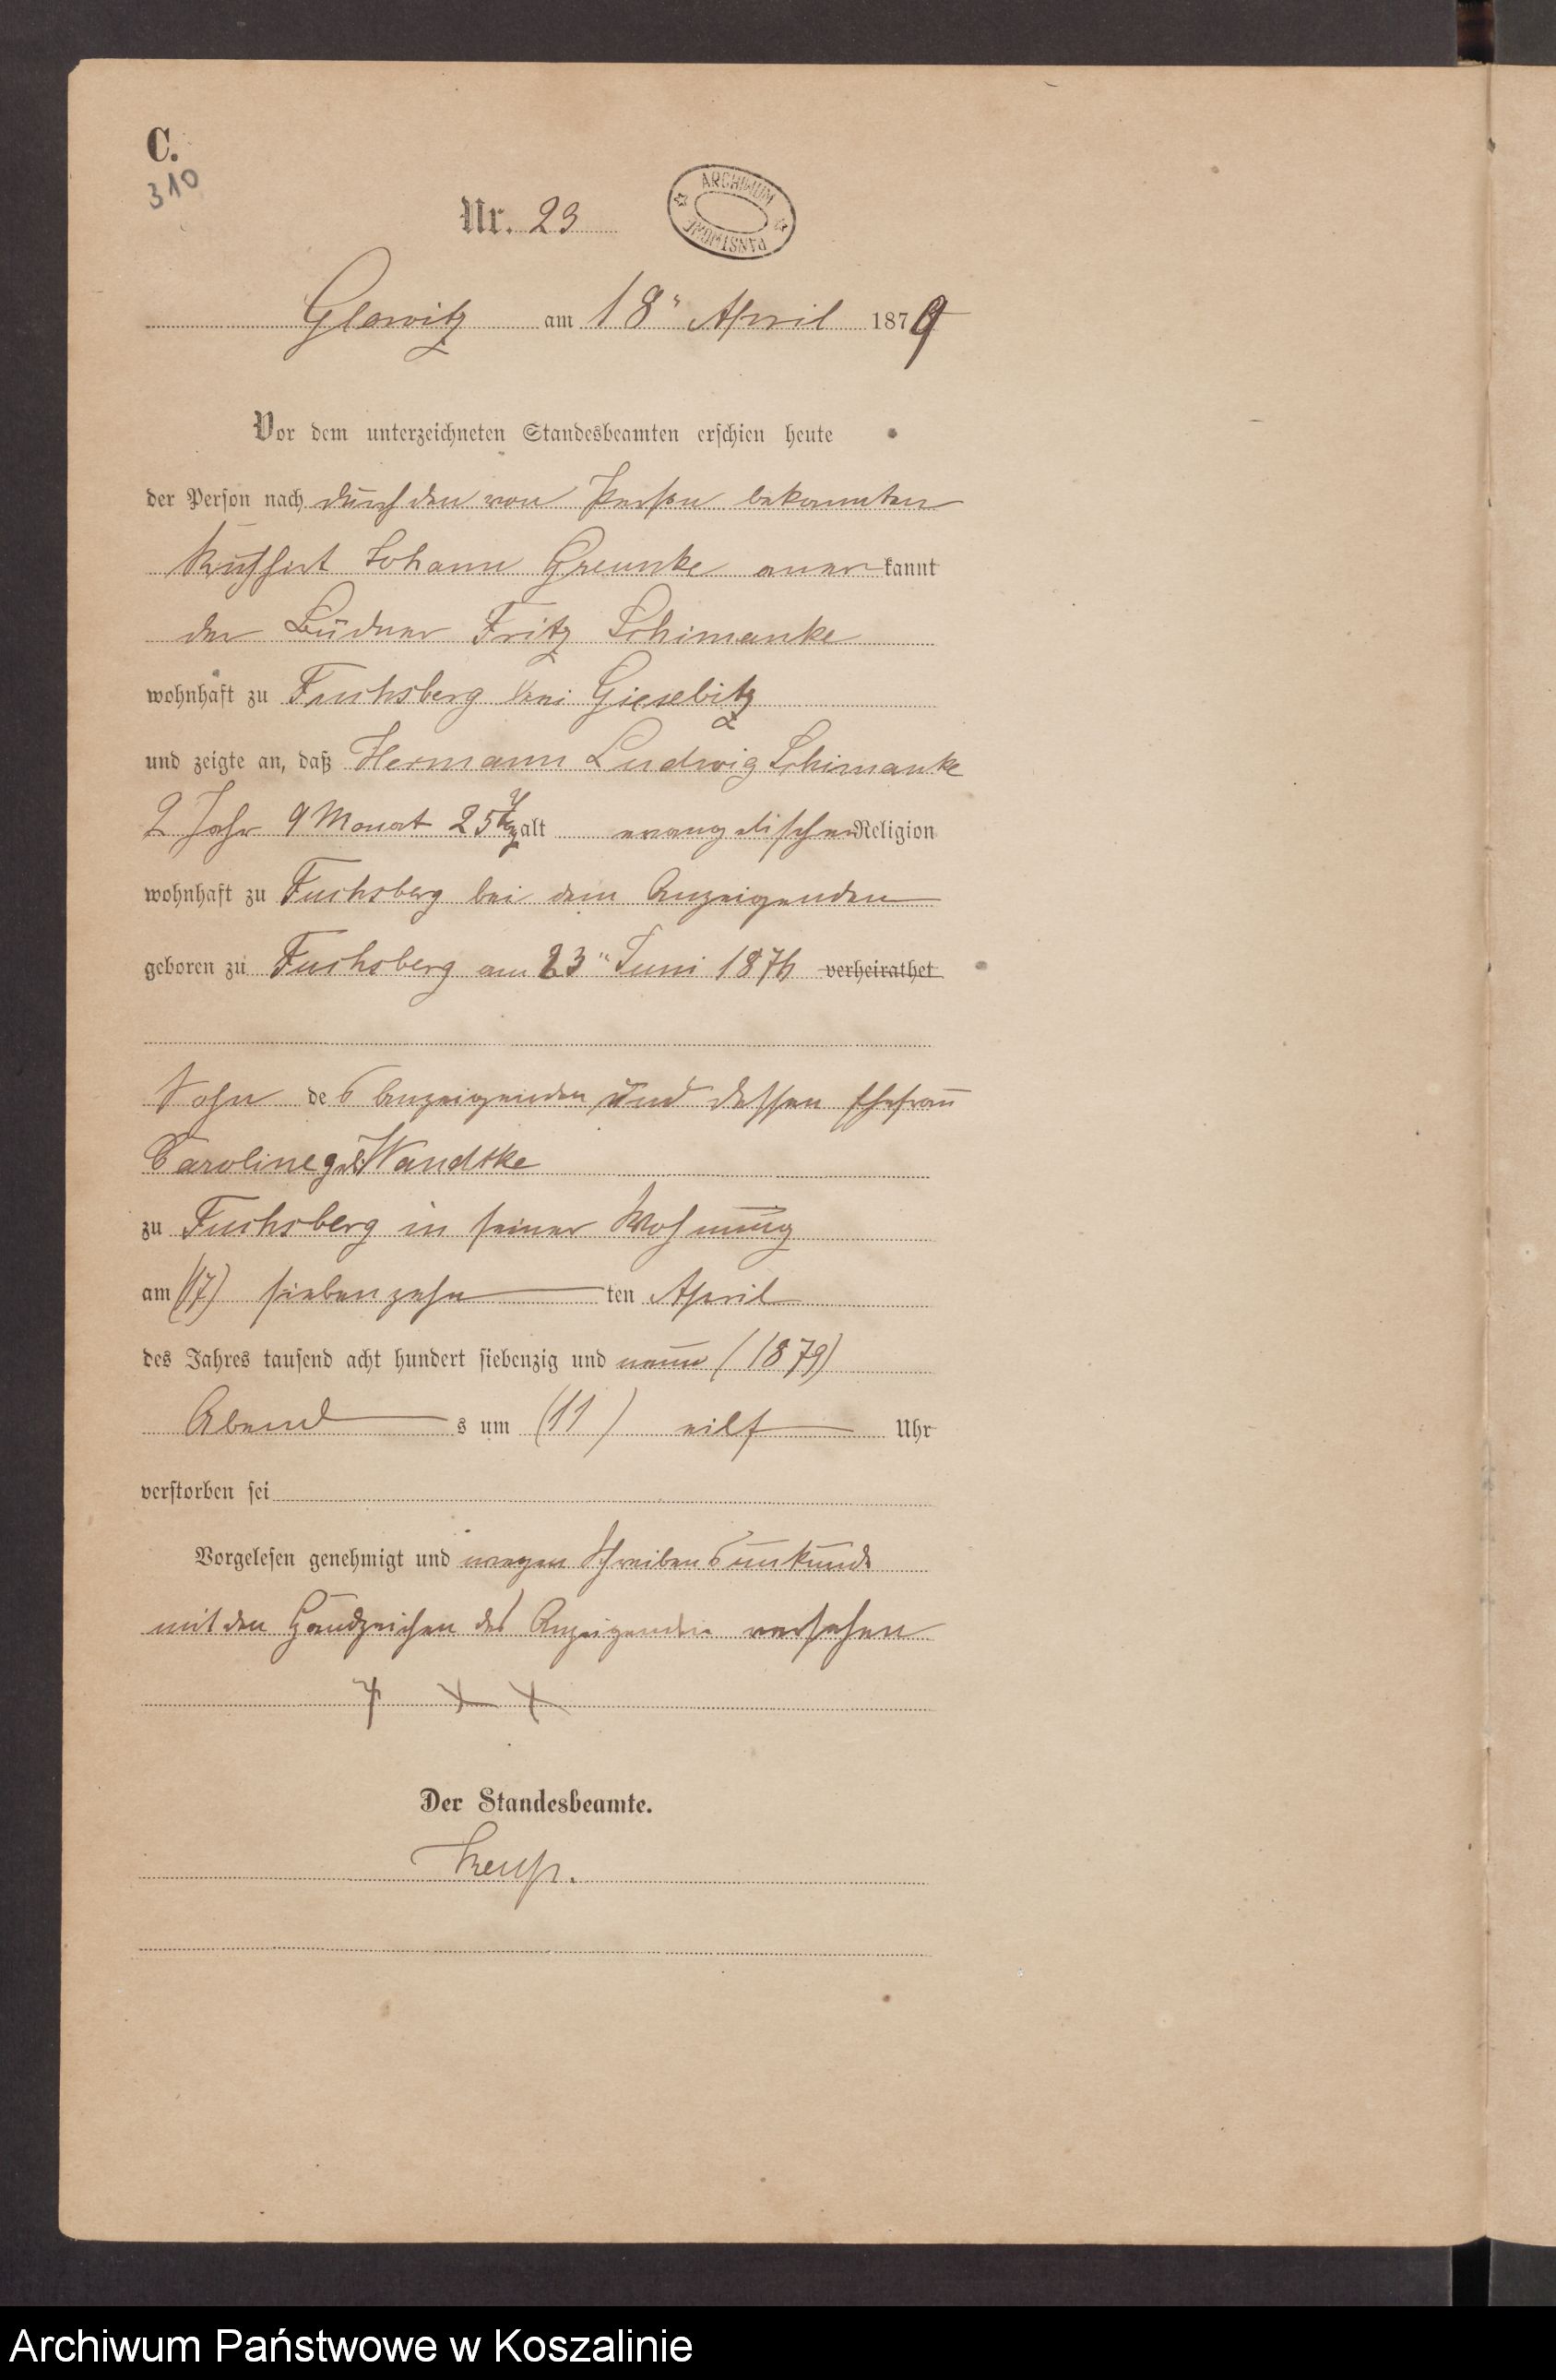 C.
310
Nr. 23
ARCHIWUM PAŃSTWOWE
Glowitz am 18" April 1879
Vor dem unterzeichneten Standesbeamten erschien heute
der Person nach durch den von Person bekannten
Johann Greunke anerkannt
der Büdner Fritz Schimanke
wohnhaft zu Fuchsberg bei Giesebitz
und zeigte an, daß Hermann Ludwig Schimanke
2 Jahr 9 Monat 25 Tg alt evangelischer Religion
wohnhaft zu Fuchsberg bei dem Anzeigenden
geboren zu Fuchsberg am 23" Juni 1876 verheirathet
Sohn des Anzeigenden und dessen Ehefrau
Caroline geb Wandtke
zu Fuchsberg in seiner Wohnung
am (17) siebenzehn ten April
des Jahres tausend acht hundert siebenzig und neun (1879)
Abend s um (11) eilf Uhr
verstorben sei
Vorgelesen genehmigt und wegen Schreibensunkunde
mit den Handzeichen des Anzeigenden versehen
+ + +
Der Standesbeamte.
Archiwum Państwowe w Koszalinie